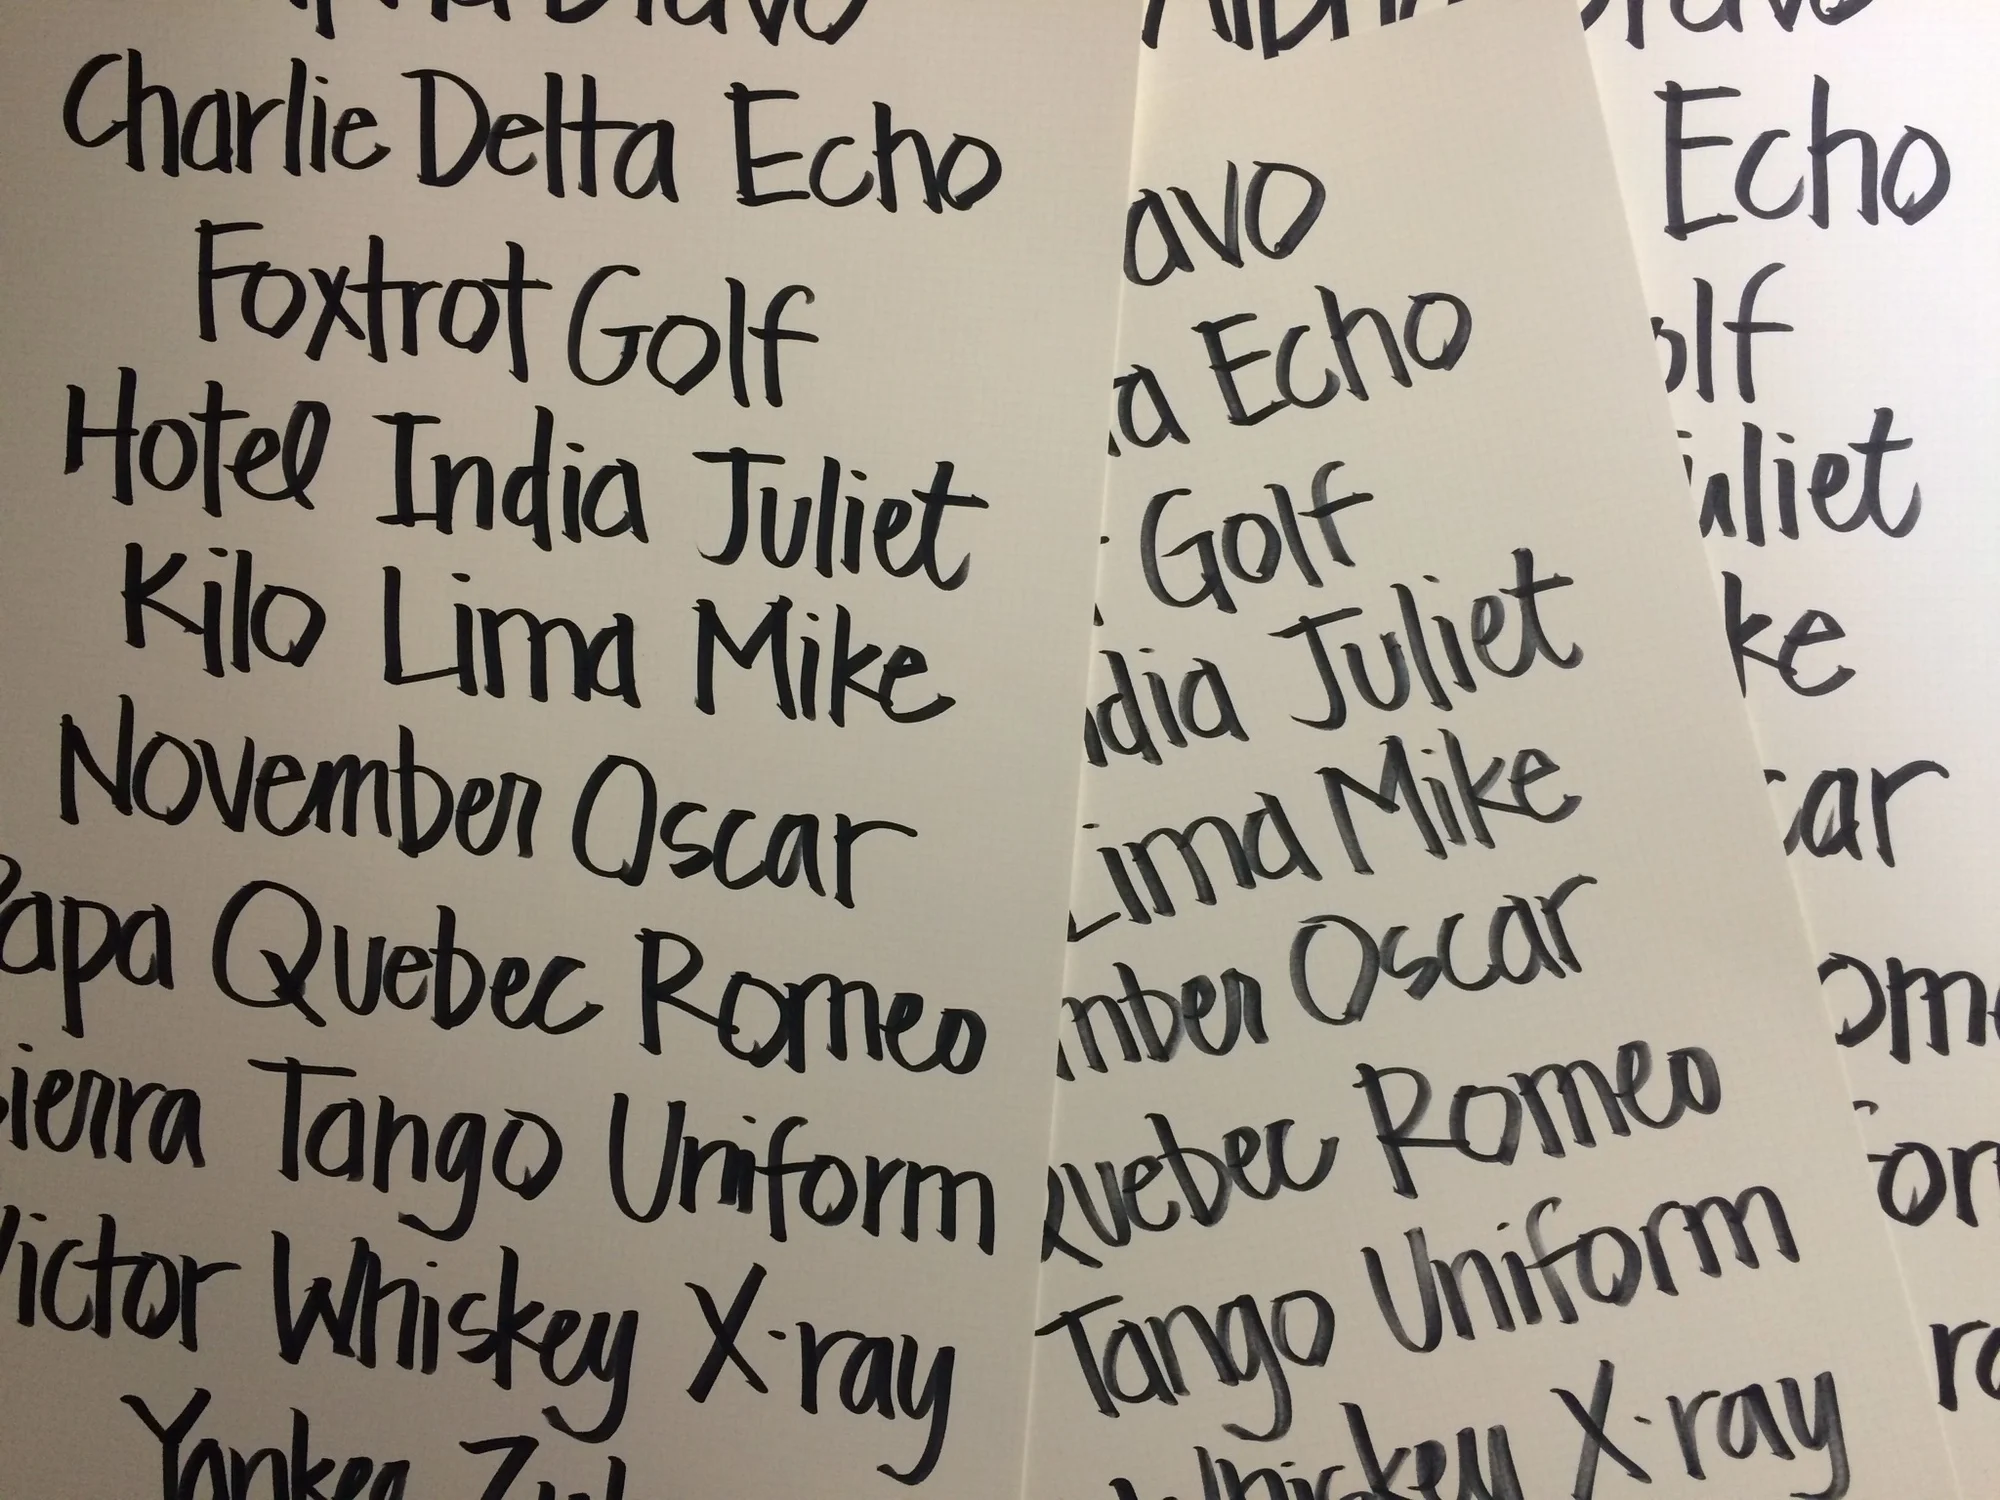 Charlie Delta Echo
Foxtrot Golf
Hotel India Juliet
Kilo Lima Mike
November Oscar
Papa Quebec Romeo
Sierra Tango Uniform
Victor Whiskey X-ray
Yankee
avo
a Echo
Golf
dia Juliet
Lima Mike
mber Oscar
Quebec Romeo
Tango Uniform
Whiskey X-ray
Echo
olf
uliet
ke
car